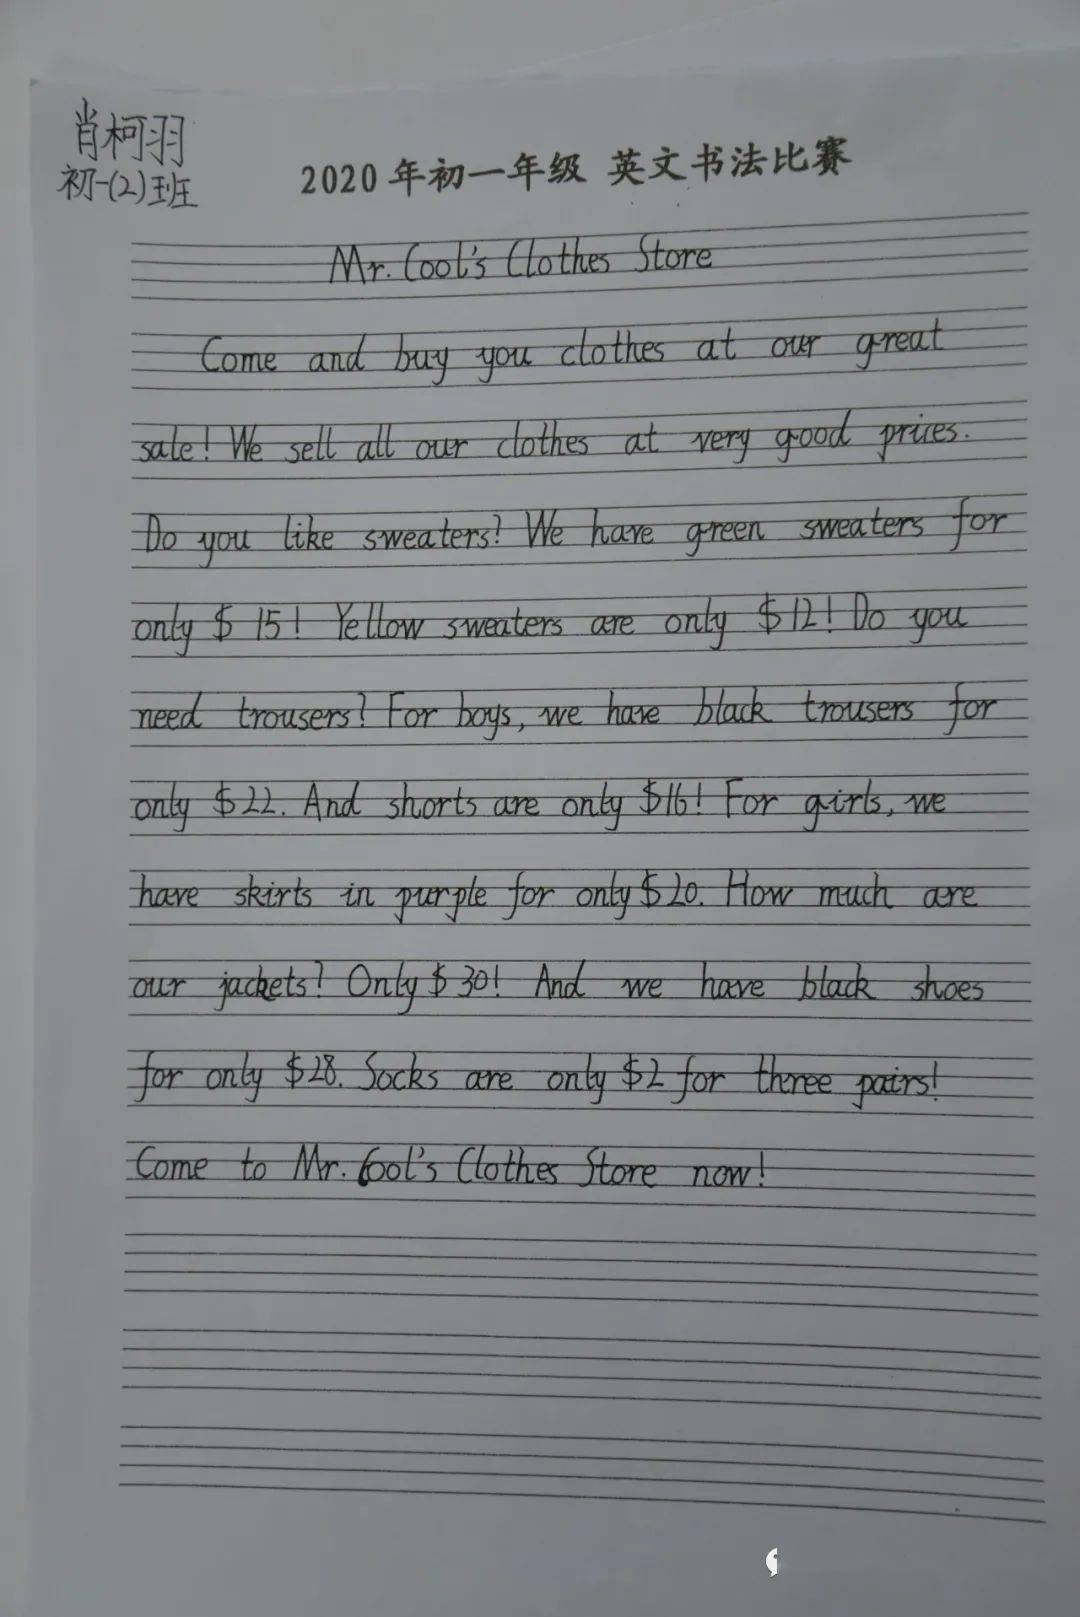 肖柯羽
初一(2)班
2020年初一年级 英文书法比赛
Mr. Cool's Clothes Store
Come and buy you clothes at our great
sale! We sell all our clothes at very good prices.
Do you like sweaters? We have green sweaters for
only $ 15! Yellow sweaters are only $12! Do you
need trousers? For boys, we have black trousers for
only $22. And shorts are only $16! For girls, we
have skirts in purple for only $20. How much are
our jackets? Only $30! And we have black shoes
for only $28. Socks are only $2 for three pairs!
Come to Mr. Cool's Clothes Store now!